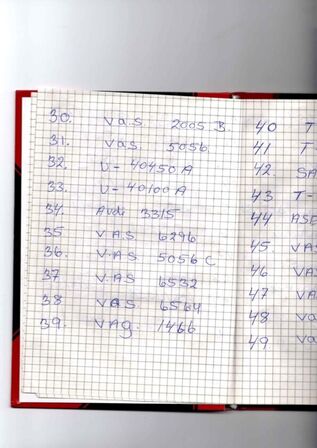 30. Va.S 2005 B
31. Vas. 5056
32. U-40450A
33. U-40100A
34. Audi 3315
35 VAS 6296
36. V.AS 5056 C
37 V.AS 6532
38 VAS 6564
39. VAG. 1466
40 T
41 T
42. SA
43 T-
44 ASE
45. VAS
46 VAS
47 VA
48 Va
49. Va